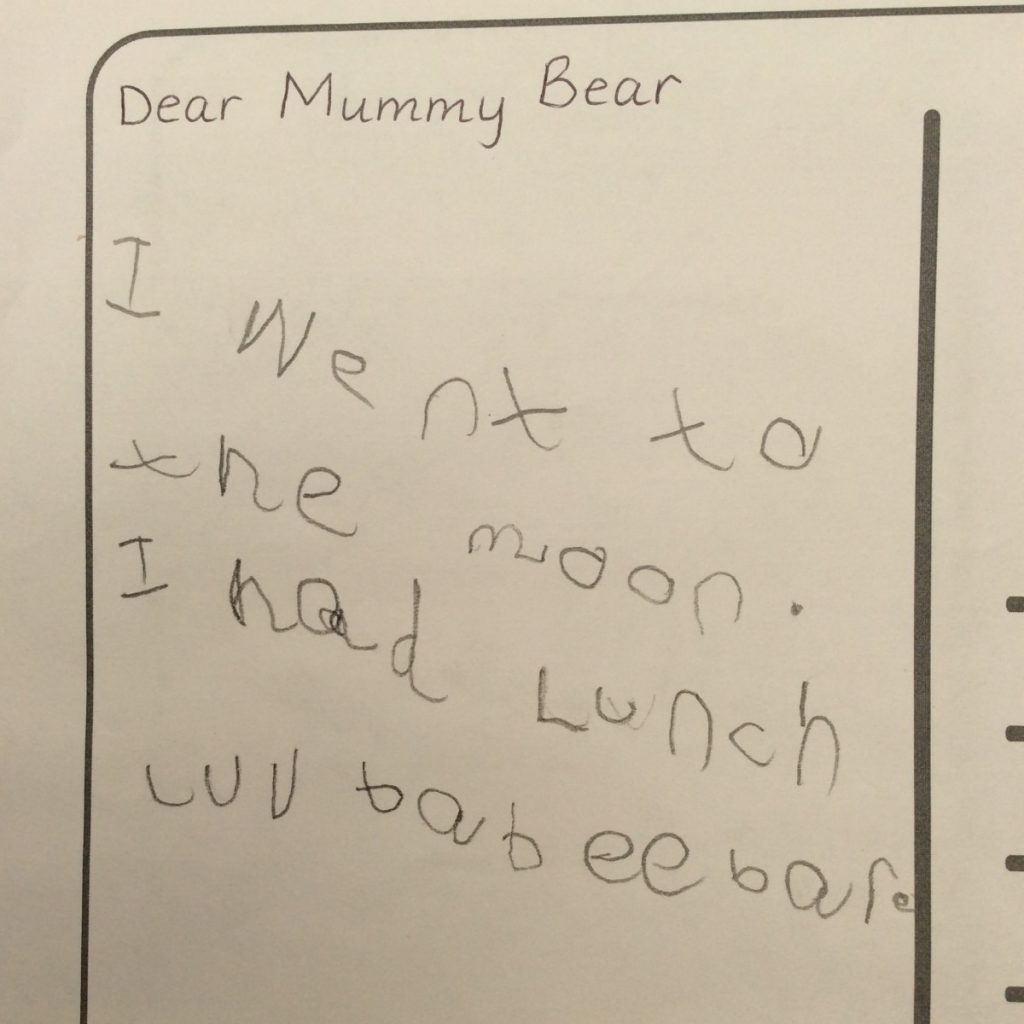 Dear Mummy Bear
I went to
the moon.
I had Lunch
luv babee bare